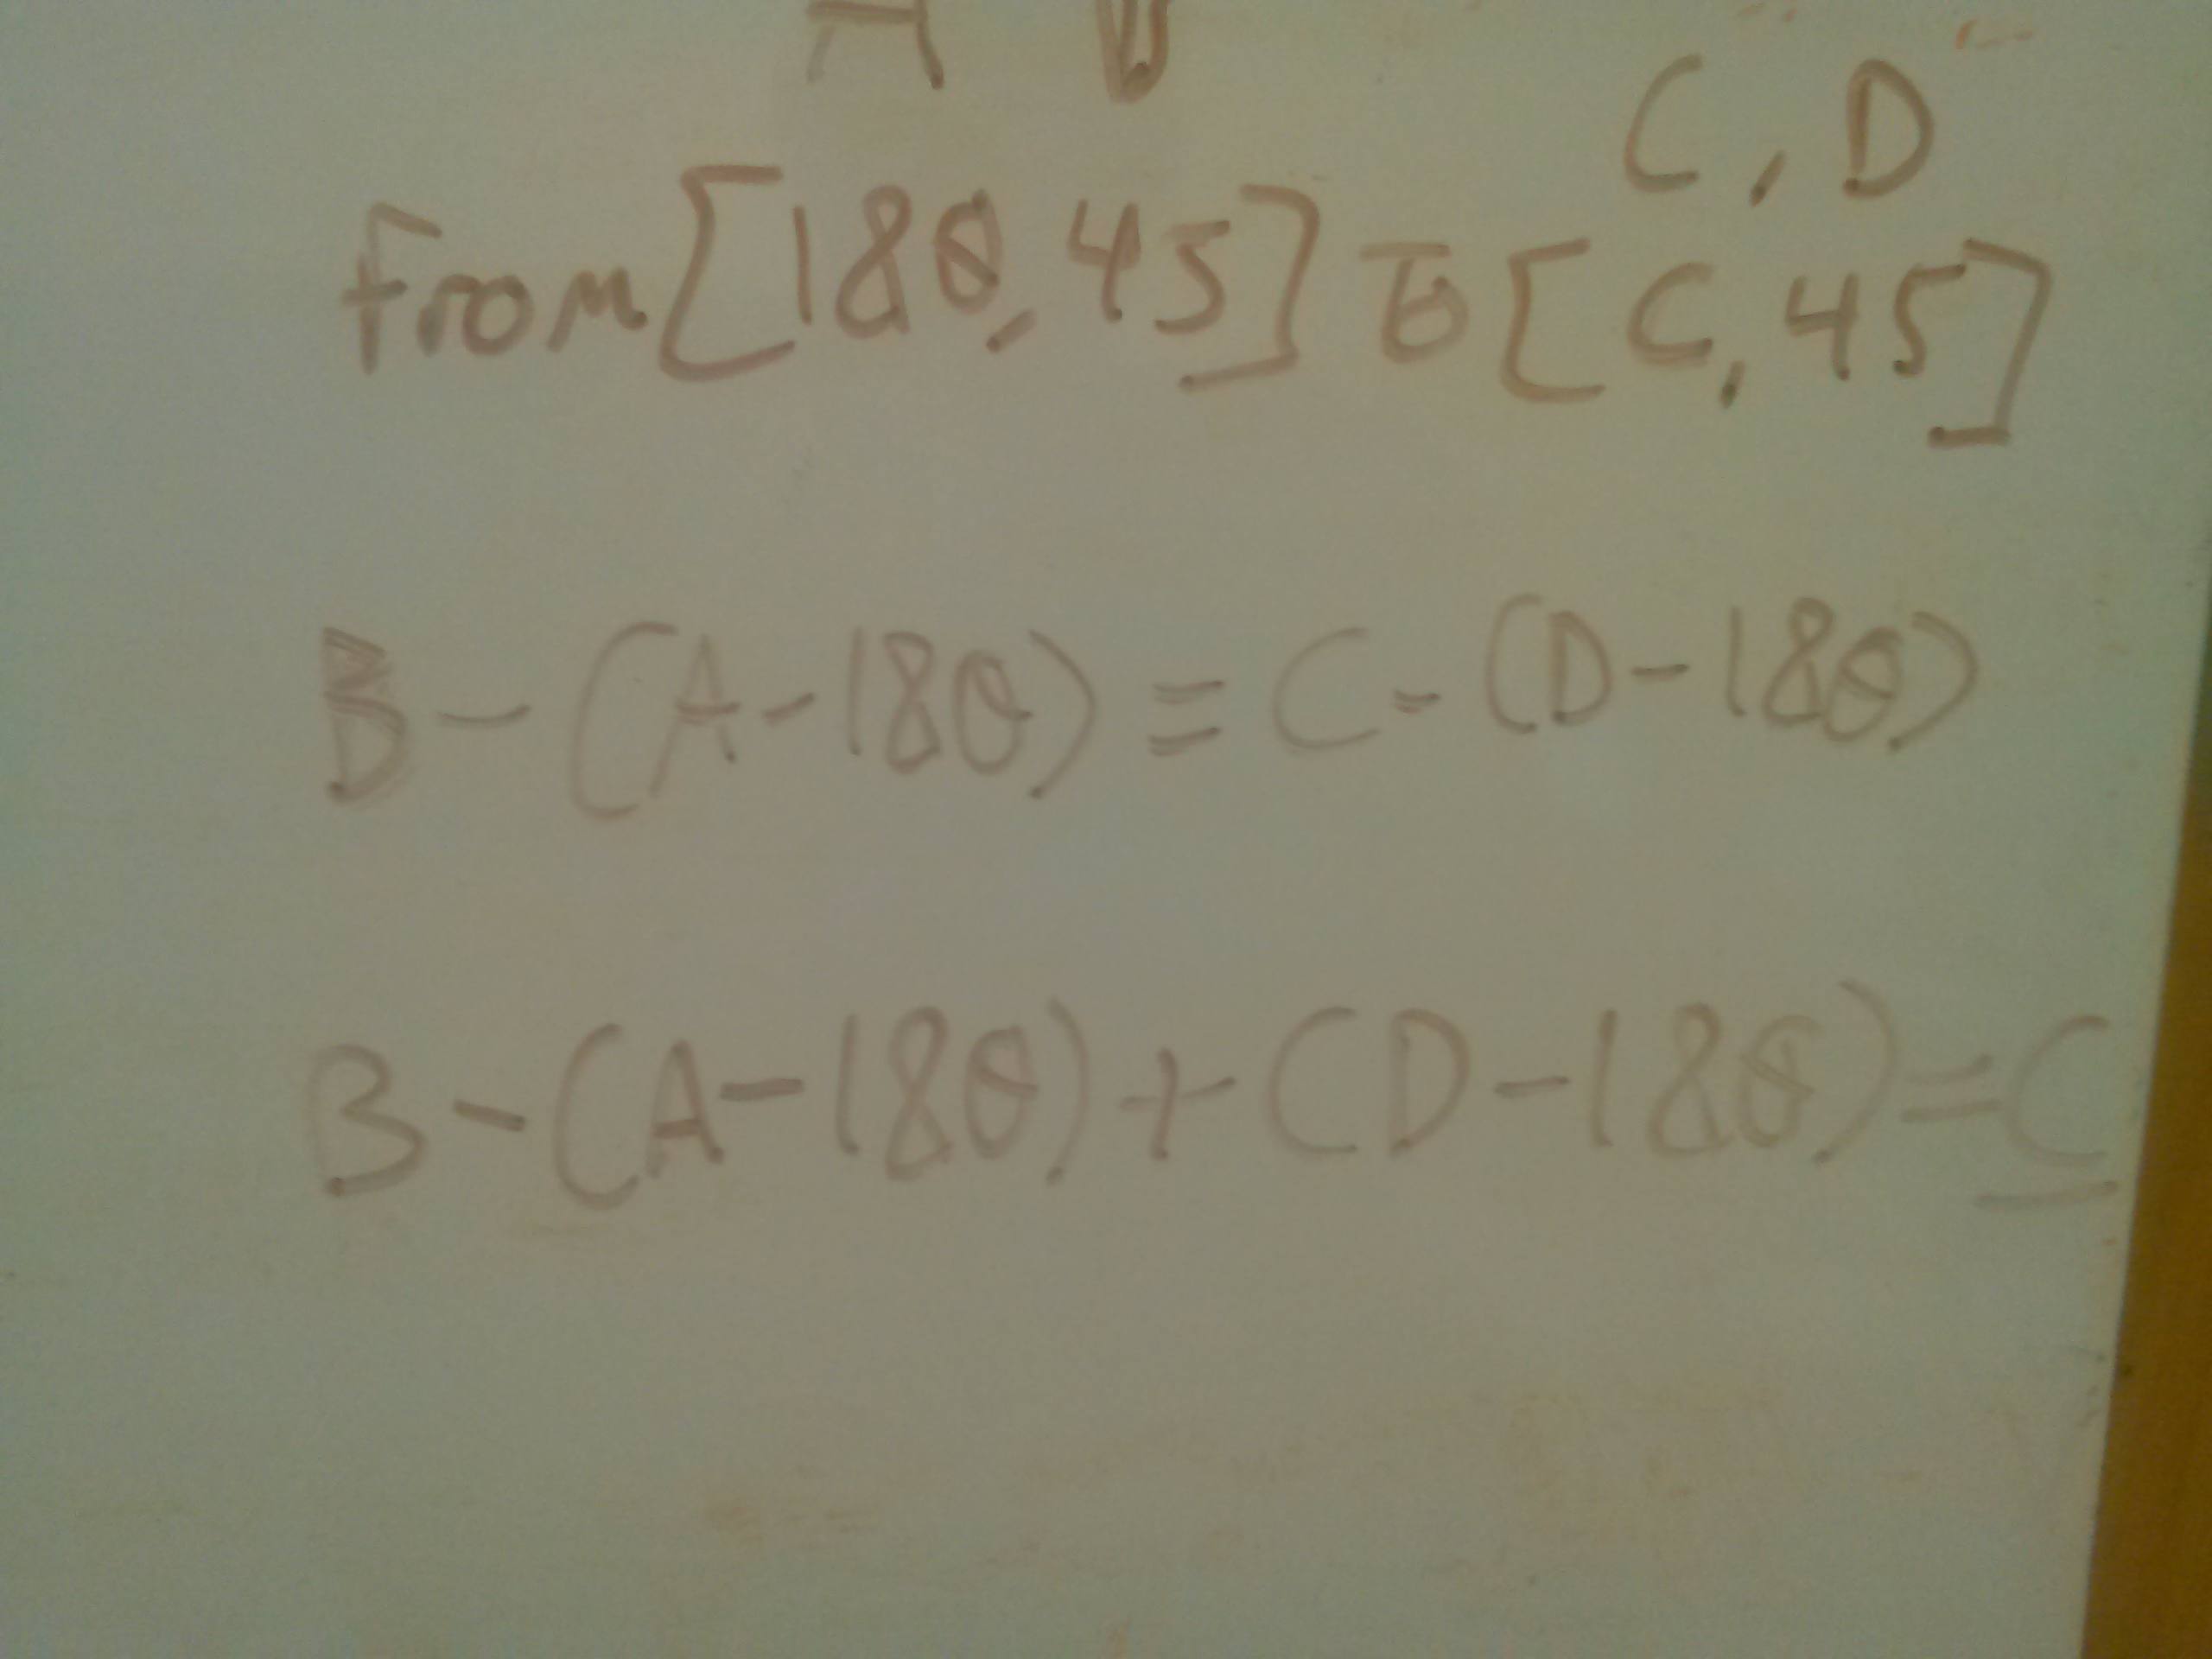 A B
C, D
From [180, 45] to [C, 45]
B - (A - 180) = C - (D - 180)
B - (A - 180) + (D - 180) = C